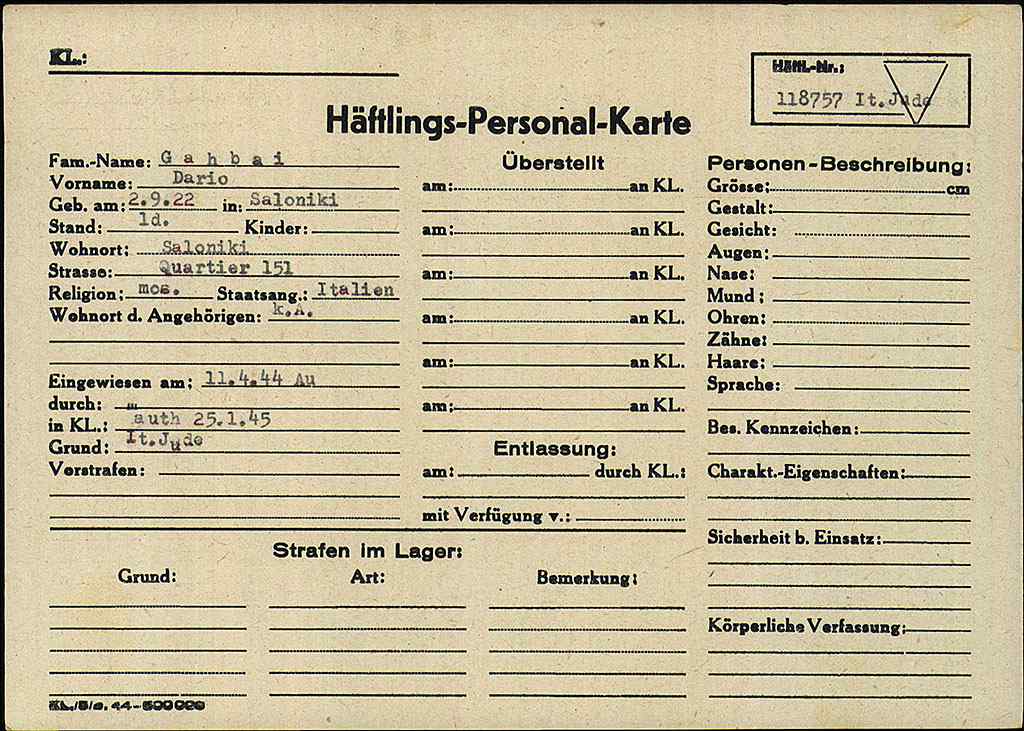 KL.:
Häftl.-Nr.:
118757 It.Jude
Häftlings-Personal-Karte
Fam.-Name: G a h b a i
Vorname: Dario
Geb. am: 2.9.22 in: Saloniki
Stand: ld. Kinder:
Wohnort: Saloniki
Strasse: Quartier 151
Religion: mos. Staatsang.: Italien
Wohnort d. Angehörigen: k.A.
Eingewiesen am: 11.4.44 Au
durch:
in KL.: auth 25.1.45
Grund: It.Jude
Vorstrafen:
Überstellt
am: an KL.
am: an KL.
am: an KL.
am: an KL.
am: an KL.
am: an KL.
Entlassung:
am: durch KL.:
mit Verfügung v.:
Personen-Beschreibung:
Grösse: cm
Gestalt:
Gesicht:
Augen:
Nase:
Mund:
Ohren:
Zähne:
Haare:
Sprache:
Bes. Kennzeichen:
Charakt.-Eigenschaften:
Sicherheit b. Einsatz:
Körperliche Verfassung:
Strafen im Lager:
Grund: Art: Bemerkung: